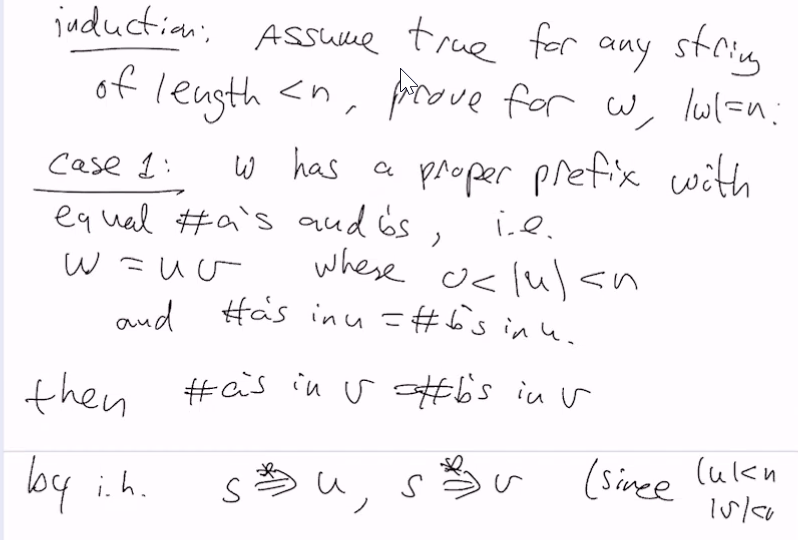 induction: Assume true for any string
of length <n, prove for w, |w|=n:
case 1: w has a proper prefix with
equal #a's and b's, i.e.
w = uv where 0<|u|<n
and #a's in u = #b's in u.
then #a's in v = #b's in v
by i.h. s *⇒ u, s *⇒ v (since |u|<n
|v|<n